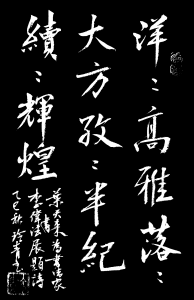 洋〻高雅落〻
大方孜〻半紀
續〻輝煌
葉大来為書法家
李偉書法展題詩
乙巳秋